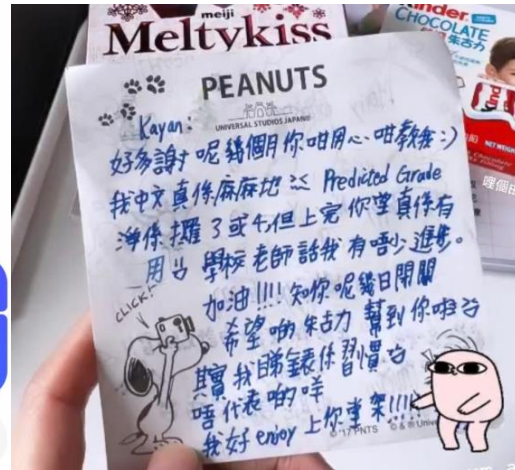 meiji
Meltykiss
kinder
CHOCOLATE
朱古力
PEANUTS
UNIVERSAL STUDIOS JAPAN
Kayan:
好多謝呢幾個月你咁用心咁教我:)
我中文真係麻麻地 Predicted Grade
淨係攞3或4,但上完你堂真係有
用 學校老師話我有唔少進步。
加油!!!! 知你呢幾日閉關
希望啲朱古力幫到你啦
其實我睇錶係習慣
唔代表啲咩
我好enjoy上你堂架!!!!
CLICK!
© '17 PNTS © & ® Univ
NET WEIGHT